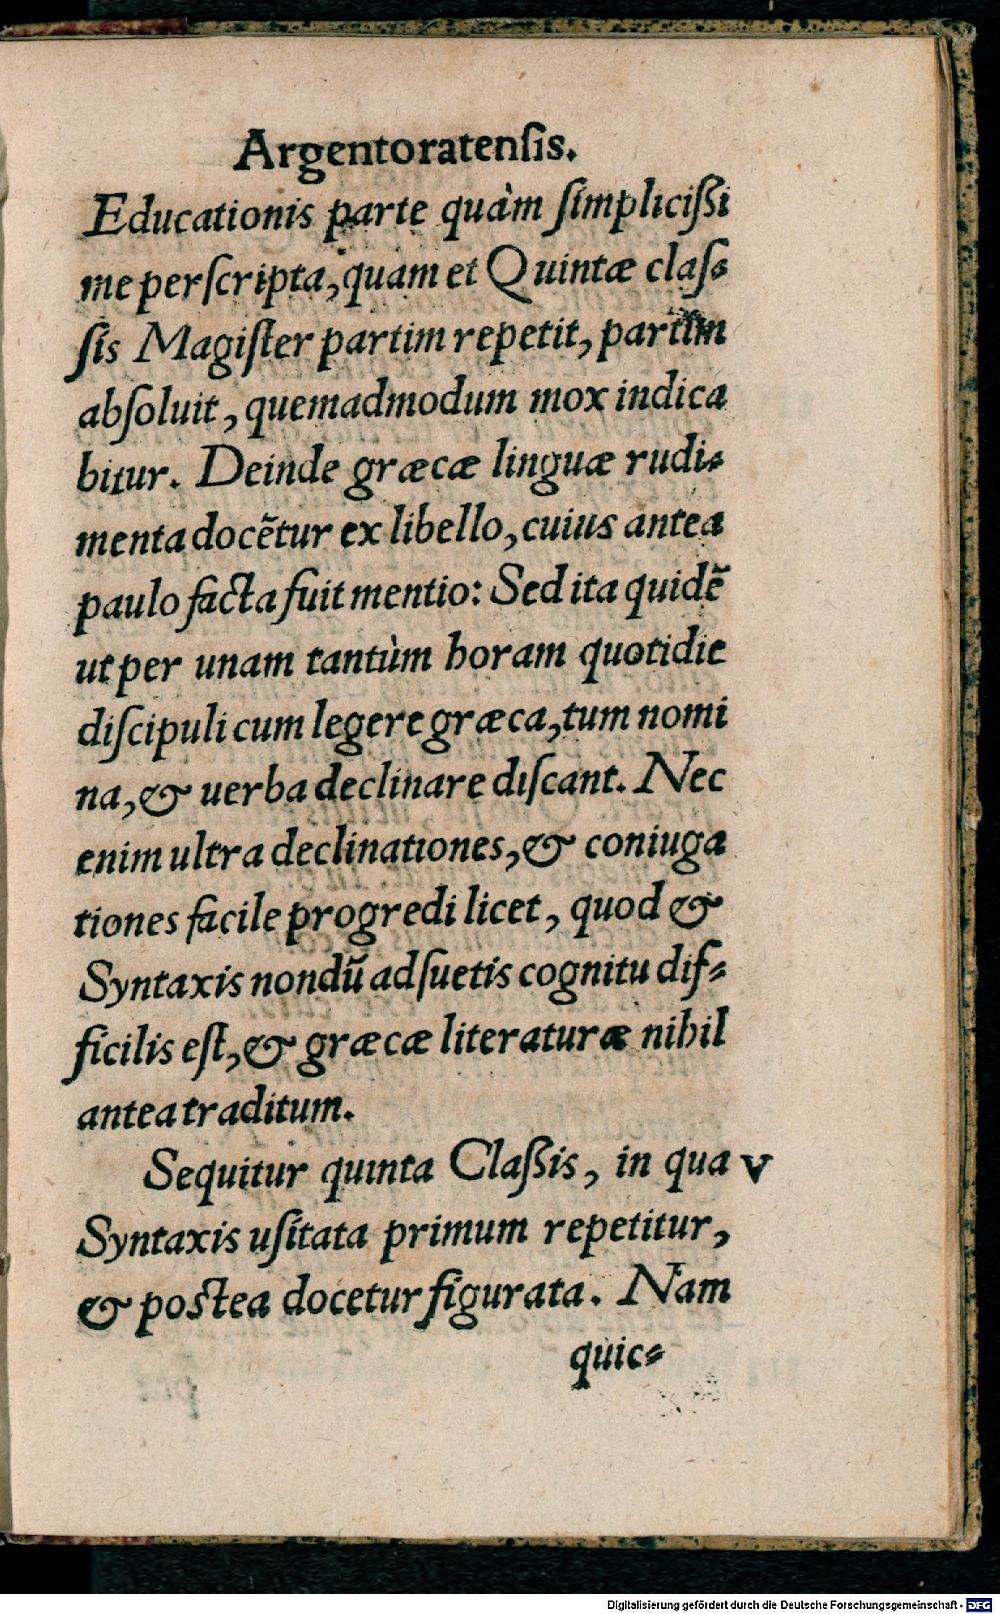 Argentoratenſis.
Educationis parte quàm ſimpliciſsi
me perſcripta, quam et Quintæ claſ-
ſis Magiſter partim repetit, partim
abſoluit, quemadmodum mox indica
bitur. Deinde græcæ linguæ rudi-
menta docētur ex libello, cuius antea
paulo facta fuit mentio: Sed ita quidē
ut per unam tantùm horam quotidie
diſcipuli cum legere græca, tum nomi
na, & uerba declinare diſcant. Nec
enim ultra declinationes, & coniuga
tiones facile progredi licet, quod &
Syntaxis nondū adſuetis cognitu dif-
ficilis eſt, & græcæ literaturæ nihil
antea traditum.
Sequitur quinta Claſsis, in qua V
Syntaxis uſitata primum repetitur,
& postea docetur figurata. Nam
quic-
Digitalisierung gefördert durch die Deutsche Forschungsgemeinschaft - DFG